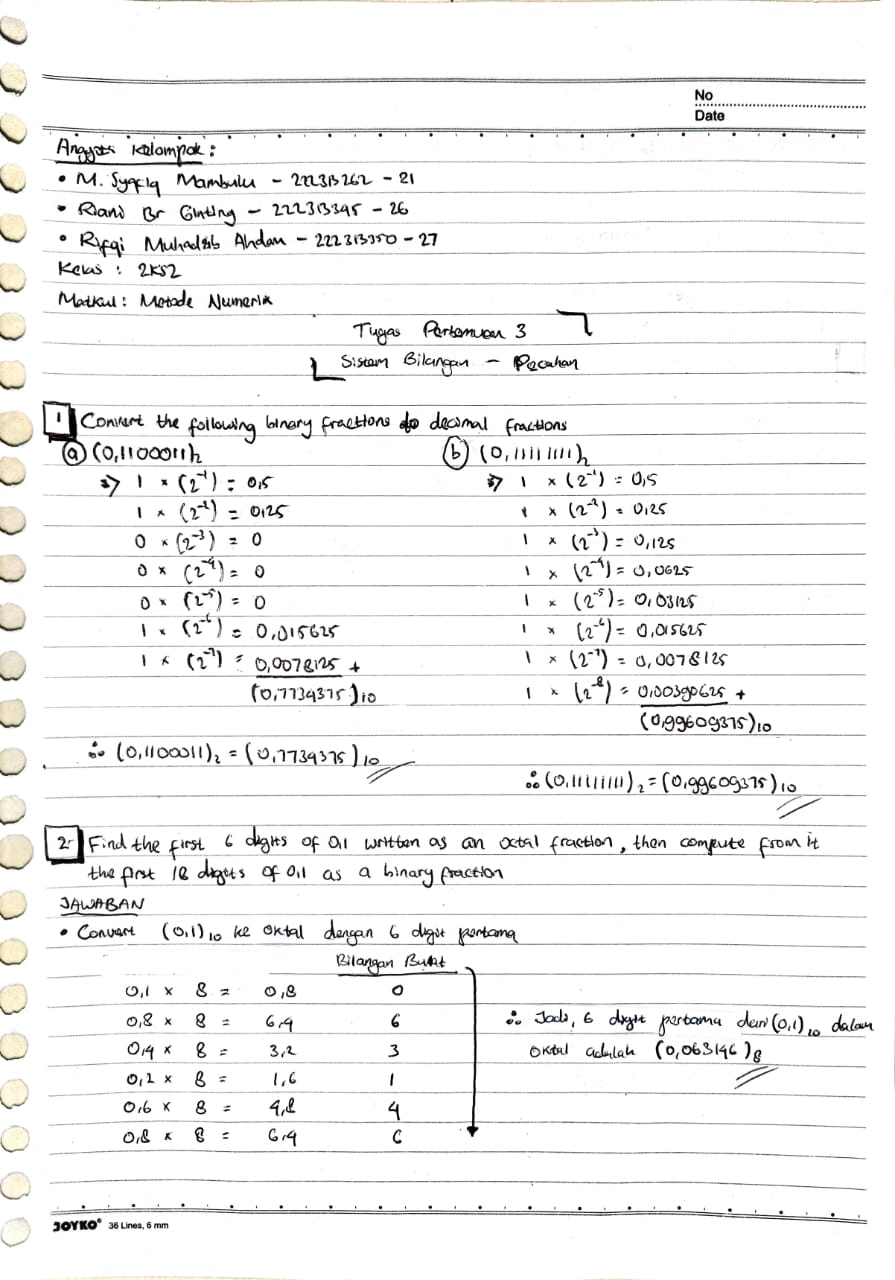 No
Date
Anggota Kelompok :
• M. Syafiq Mambulu - 222313262 - 21
• Riani Br Ginting - 222313345 - 26
• Rifqi Muhadzib Ahdan - 222313350 - 27
Kelas : 2KS2
Matkul : Metode Numerik
Tugas Pertemuan 3
Sistem Bilangan - Pecahan
1 Convert the following binary fractions to decimal fractions
(a) (0,1100011)₂
=> 1 × (2⁻¹) = 0,5
1 × (2⁻²) = 0,25
0 × (2⁻³) = 0
0 × (2⁻⁴) = 0
0 × (2⁻⁵) = 0
1 × (2⁻⁶) = 0,015625
1 × (2⁻⁷) = 0,0078125 +
(0,7734375)₁₀
∴ (0,1100011)₂ = (0,7734375)₁₀
(b) (0,11111111)₂
=> 1 × (2⁻¹) = 0,5
1 × (2⁻²) = 0,25
1 × (2⁻³) = 0,125
1 × (2⁻⁴) = 0,0625
1 × (2⁻⁵) = 0,03125
1 × (2⁻⁶) = 0,015625
1 × (2⁻⁷) = 0,0078125
1 × (2⁻⁸) = 0,00390625 +
(0,99609375)₁₀
∴ (0,11111111)₂ = (0,99609375)₁₀
2. Find the first 6 digits of 0,1 written as an octal fraction, then compute from it
the first 18 digits of 0,1 as a binary fraction
JAWABAN
• Convert (0,1)₁₀ ke oktal dengan 6 digit pertama
Bilangan Bulat
0,1 × 8 = 0,8 0
0,8 × 8 = 6,4 6
0,4 × 8 = 3,2 3
0,2 × 8 = 1,6 1
0,6 × 8 = 4,8 4
0,8 × 8 = 6,4 6
∴ Jadi, 6 digit pertama dari (0,1)₁₀ dalam
oktal adalah (0,063146)₈
JOYKO® 36 Lines, 6 mm